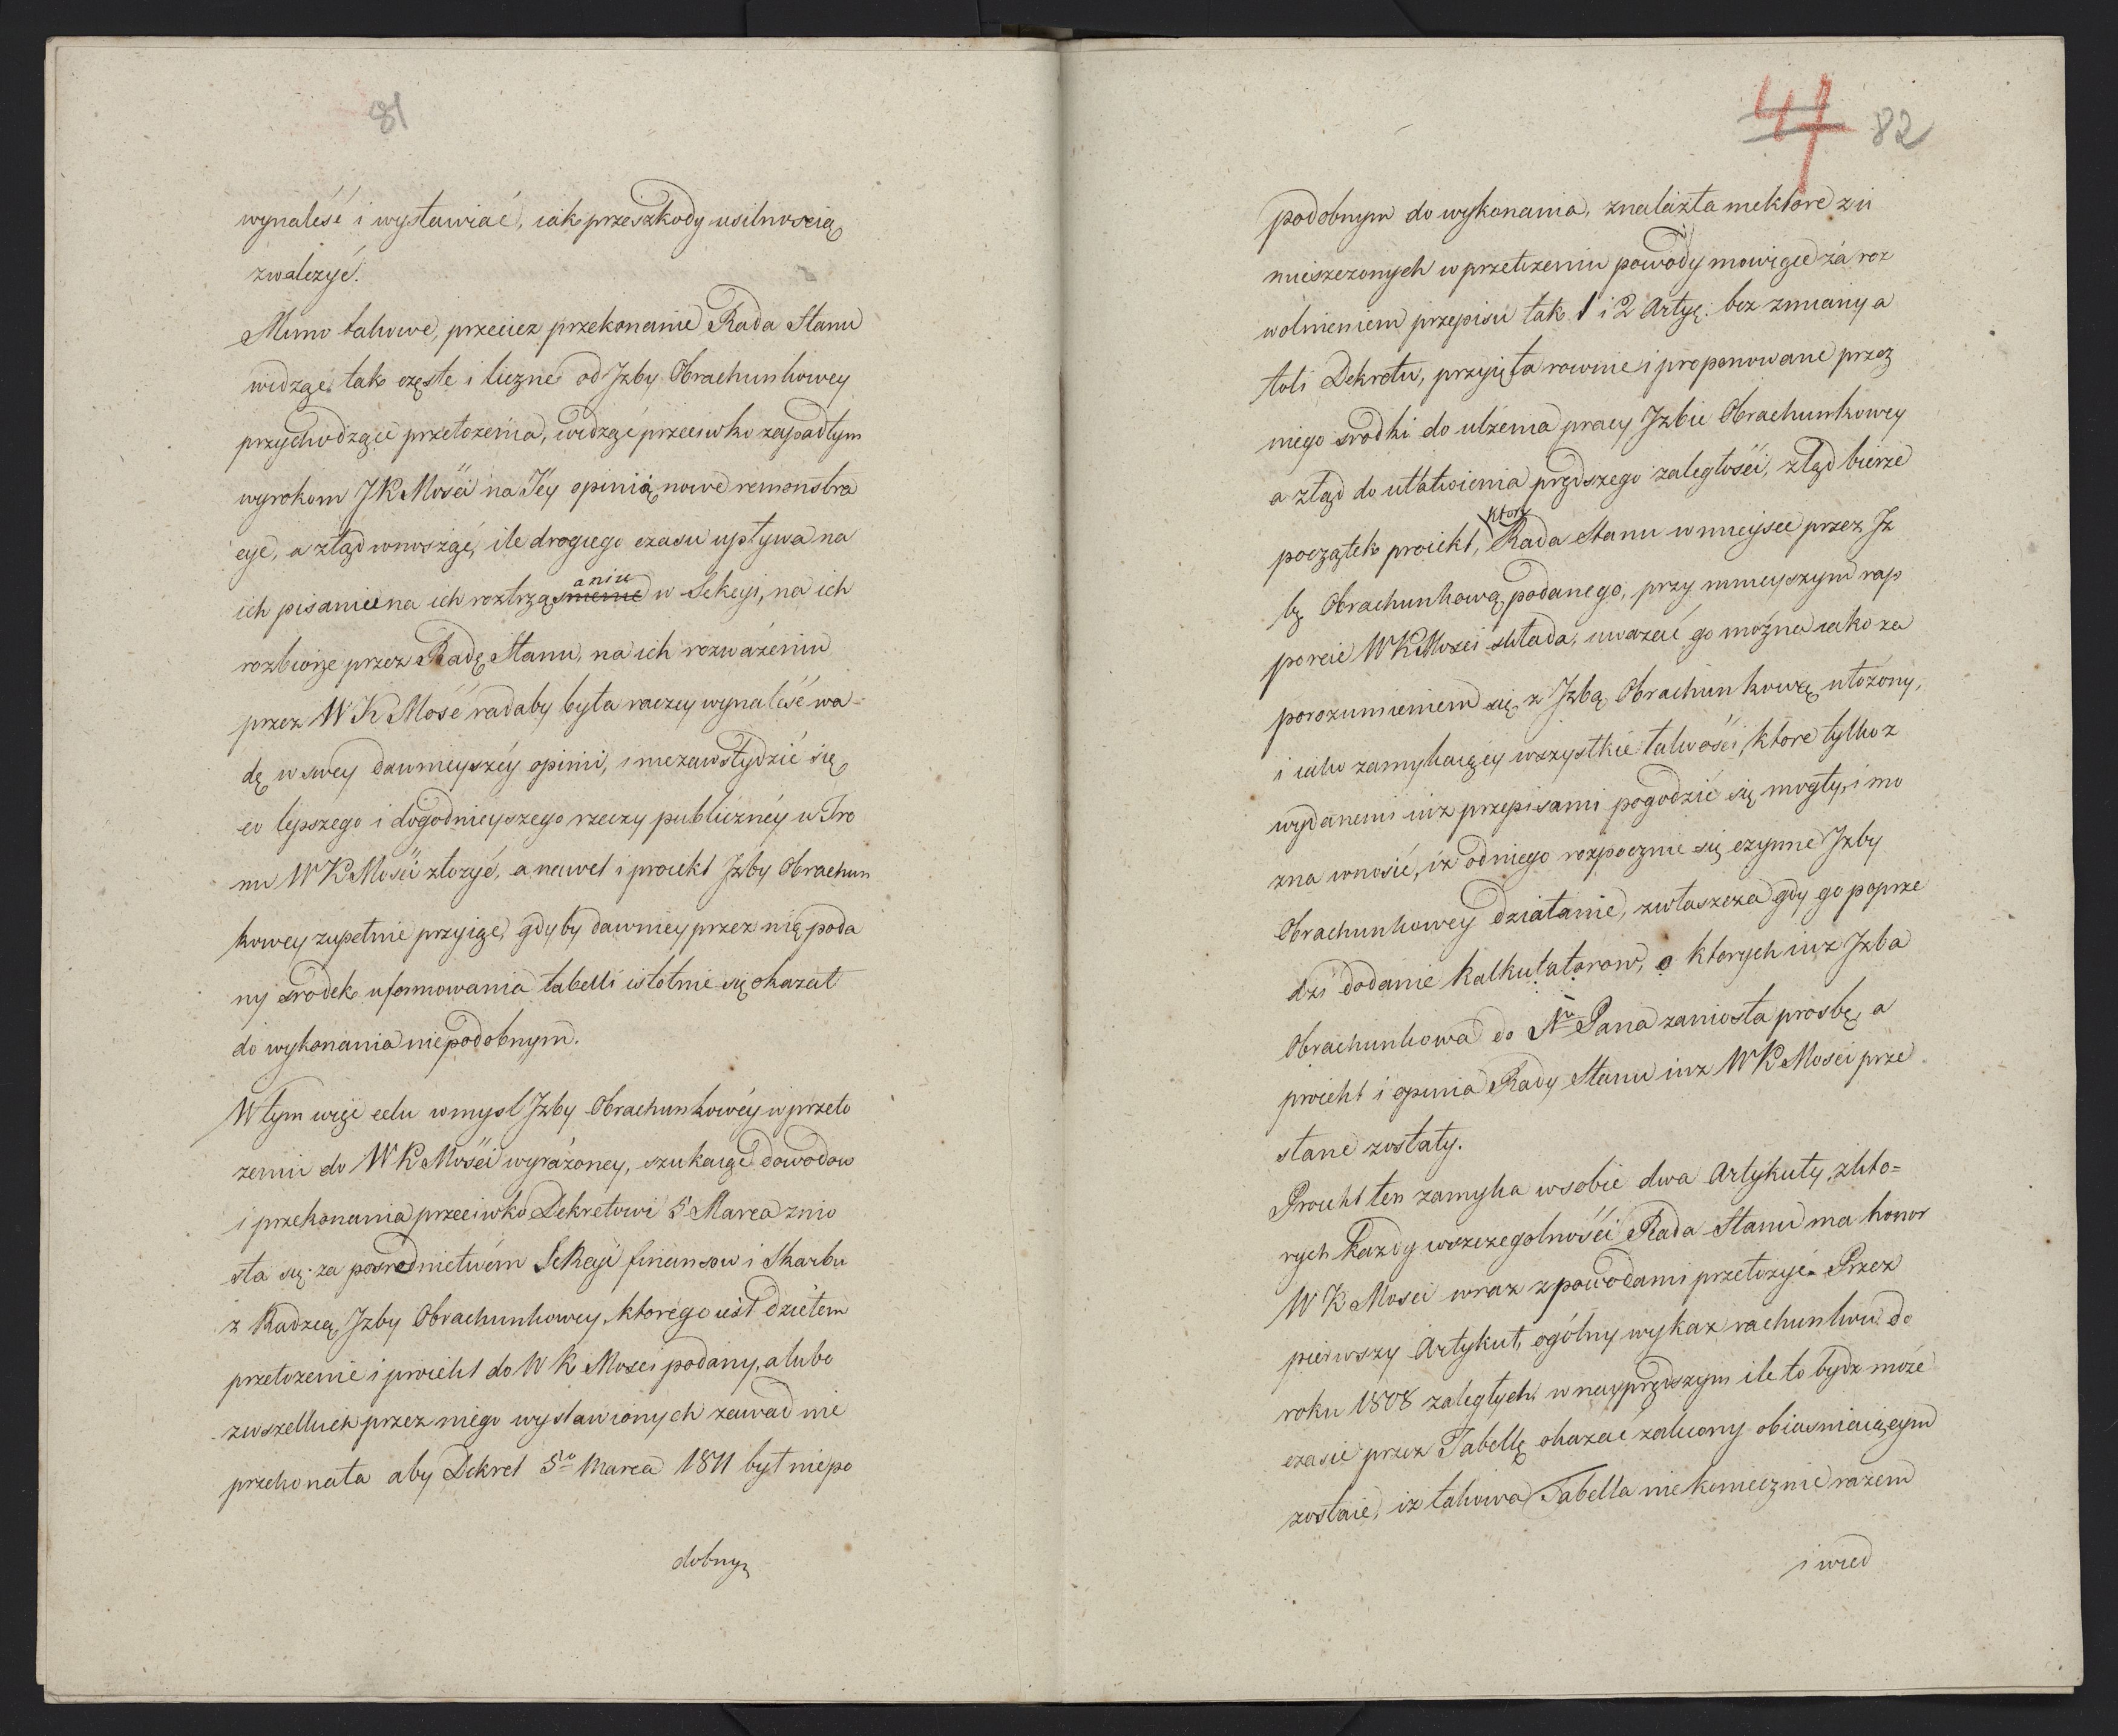 81
wynaleść i wystawiać, iak przeszkody usilnoscią
zwalczyć.
Mimo takowe, przeciez przekonanie Rada Stanu
widząc tak częste i liczne od Izby Obrachunkowey
przychodzące przełożenia, widząc przeciwko zapadłym
wyrokom JKMości na Jey opinią nowe remonstra
cye, a ztąd wnosząc, ile drogiego czasu upływa na
ich pisanie na ich roztrząsnienie aniu w Sekcyi, na ich
rozbiorze przez Radę Stanu, na ich rozważeniu
przez WKMość radaby była raczey wynaleść wa-
dę w swey dawnieyszéy opinii, i niezawstydzić się
co lepszego i dogodnieyszego rzeczy publicznéy u Tro
nu WKMości złożyć, a nawet i proiekt Izby Obrachun
kowey zupełnie przyiąc, gdyby dawniey przez nię poda
ny srodek uformowania tabelli istotnie się okazał
do wykonania niepodobnym.
W tym więc celu w mysl Izby Obrachunkowéy w przeło
zeniu do WKMości wyrażoney, szukaiąc dowodow
i przekonania przeciwko Dekretowi 5 Marca znio
sła się za posrednictwem Sekcyi finansow i Skarbu
z Radzcą Izby Obrachunkowey, ktorego iest dziełem
przełozenie i proiekt do WKMosci podany, a lubo
zwszelkich przez niego wystawionych zawad nie
przekonała aby Dekret 5go Marca 1811 był niepo
dobny
47 82
podobnym do wykonania, znalazła niektore z u
mieszczonych w przełozeniu powody mowiące za roz
wolnieniem przepisu tak 1 i 2 Arty: bez zmiany a
toli Dekretu, przyięła rownie i proponowane przez
niego srodki do ulżenia pracy Izbie Obrachunkowey
a ztąd do ułatwienia prędszego zaległości, ztąd bierze
początek proiekt, ktory Rada Stanu w mieysce przez Iz
bę Obrachunkową podanego, przy ninieyszym rap
porcie WKMosci składa, uważać go można iako za
porozumieniem się z Izbą Obrachunkową ułożony,
i iako zamykaiący wszystkie łatwości, ktore tylko z
wydanemi iuz przepisami pogodzić się mogły, i mo
zna wnosić, iz od niego rozpocznie się czynne Izby
Obrachunkowey działanie, zwłaszcza gdy go poprze
dzi dodanie kalkulatorow, o ktorych iuz Izba
Obrachunkowa do No Pana zaniosła prosbę, a
proiekt i opinia Rady Stanu iuz WKMosci prze
słane zostały.
Proiekt ten zamyka w sobie dwa Artykuły, z kto=
rych każdy wszczegolności Rada Stanu ma honor
WKMosci wraz z powodami przełożyć. Przez
pierwszy Artykuł, ogólny wykaz rachunkow do
roku 1808 zaległych w nayprędszym ile to bydz może
czasie przez Tabellę okazać zalecony obiasniaiącym
zostaie, iz takowa Tabella niekoniecznie razem
i wied